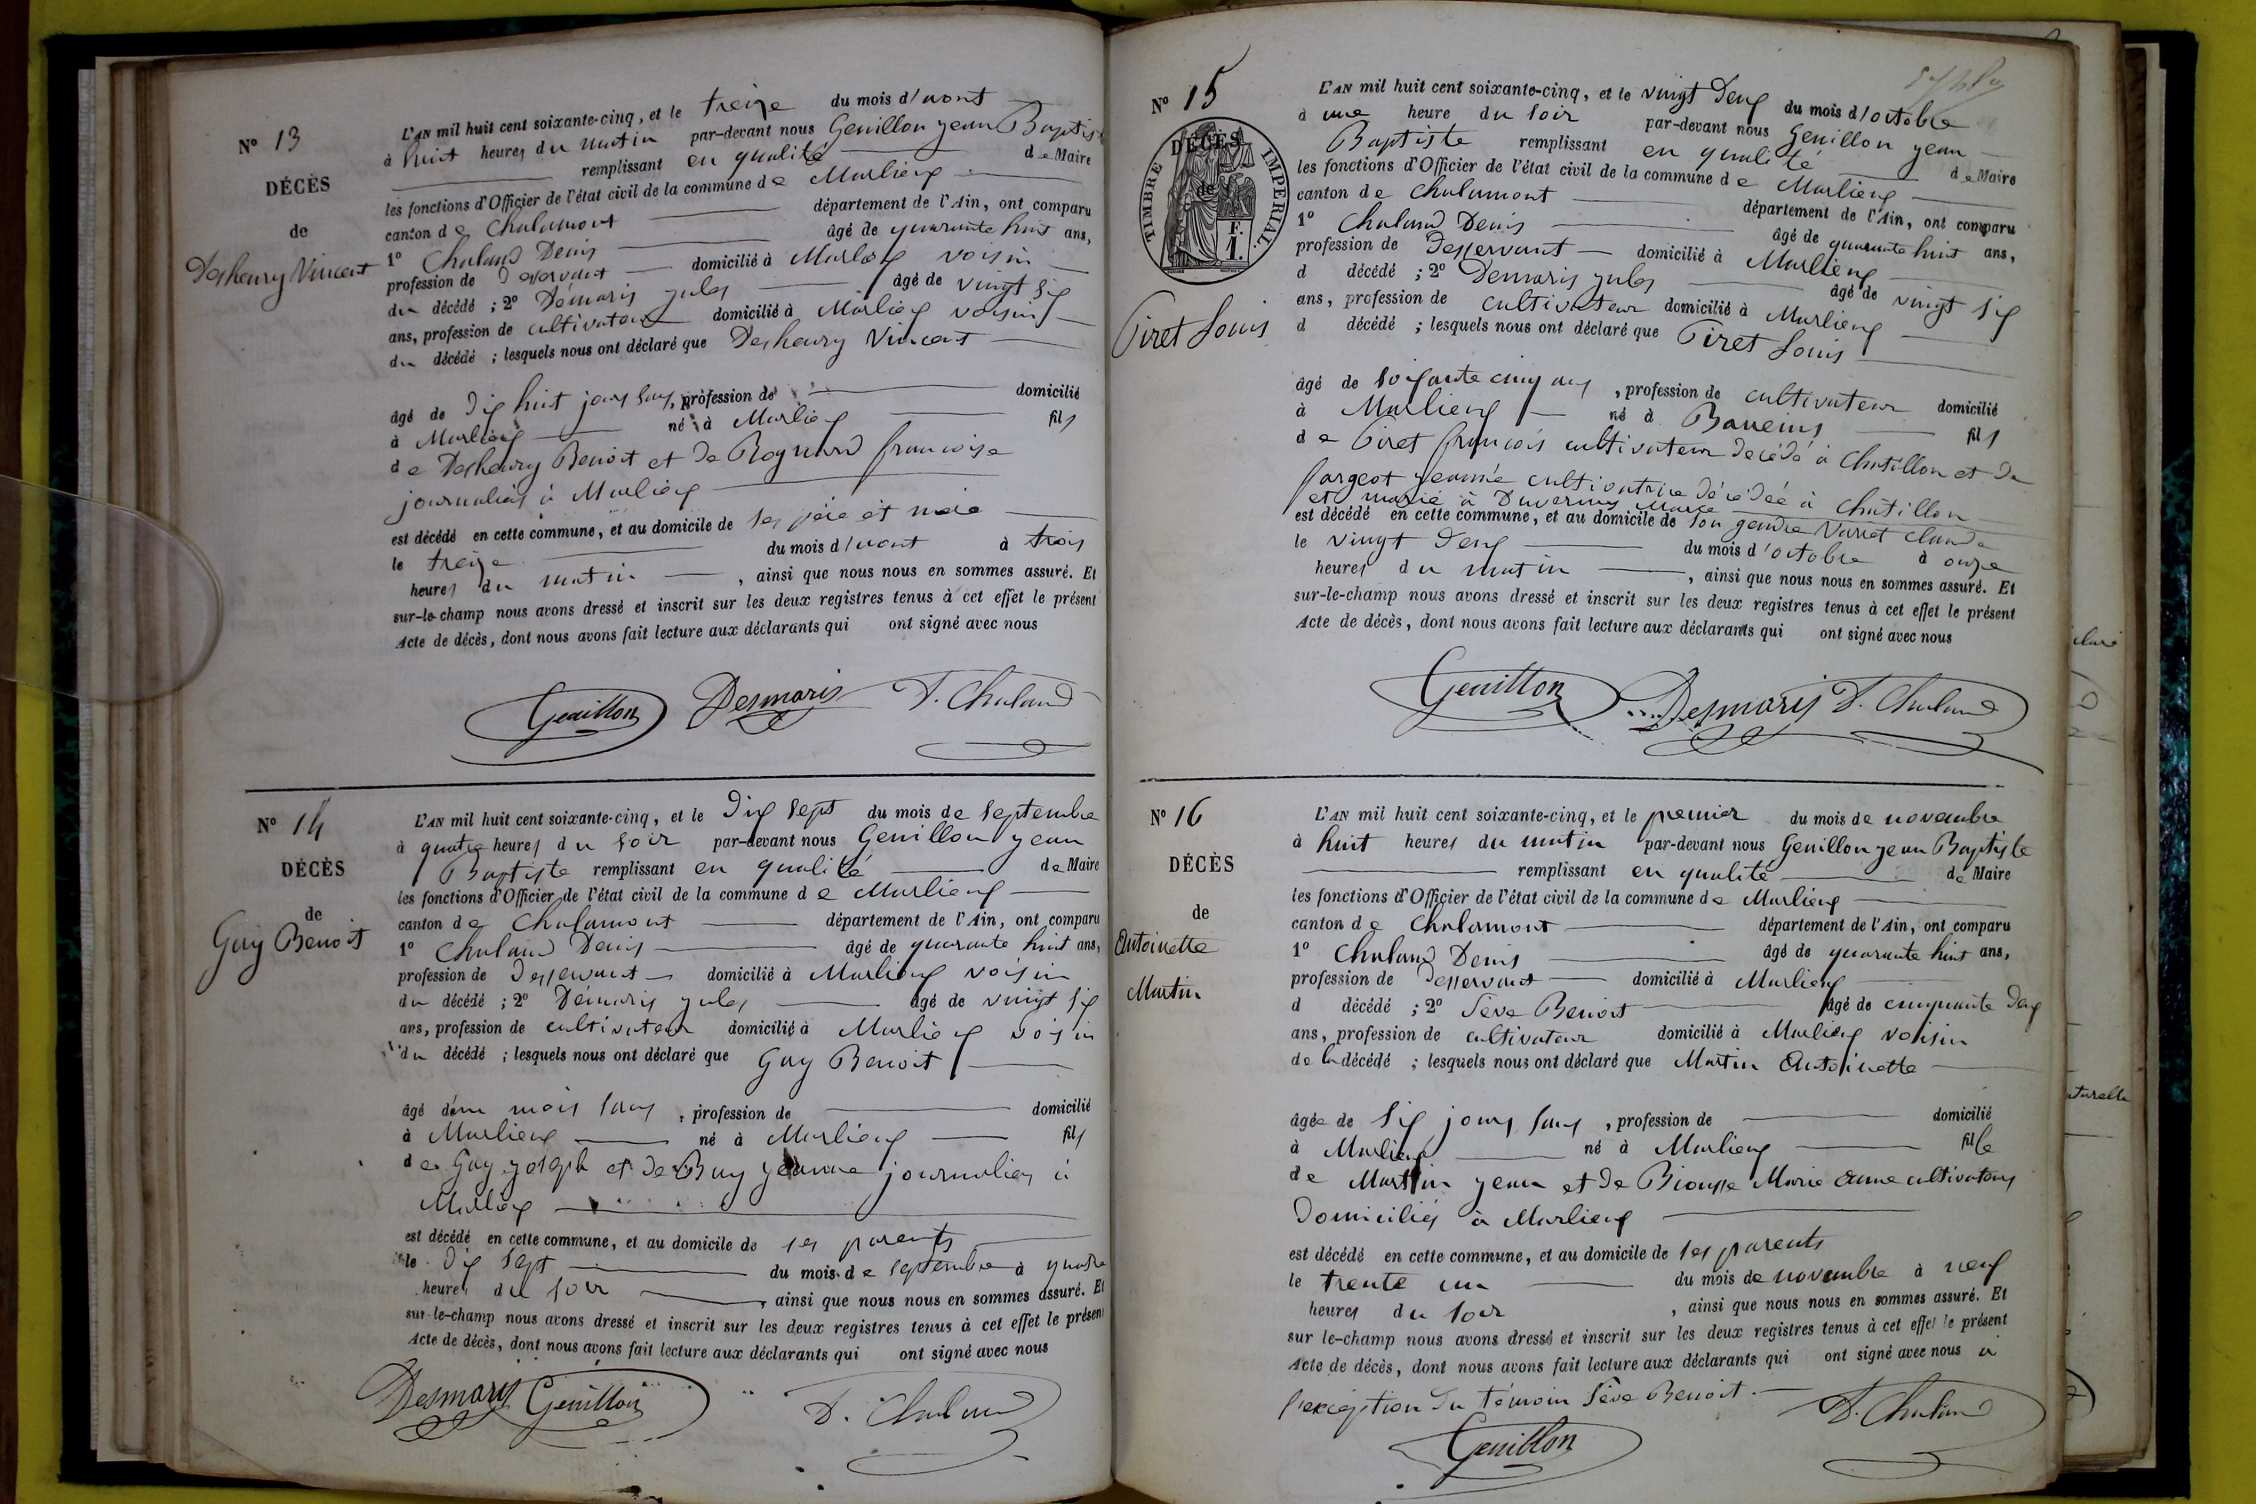 N° 13
DÉCÈS
de
Desheury Vincent
L'AN mil huit cent soixante-cinq, et le treize du mois d'aout
à huit heures du matin par-devant nous Genillon jean Baptiste
remplissant en qualité de Maire
les fonctions d'Officier de l'état civil de la commune de Marlieux
canton de Chalamont département de l'Ain, ont comparu
1° Chaland Denis âgé de quarante huit ans,
profession de Desservant domicilié à Marlieux voisin
du décédé ; 2° Démaris jules âgé de vingt six
ans, profession de cultivateur domicilié à Marlieux voisin
du décédé ; lesquels nous ont déclaré que Desheury Vincent
âgé de dix huit jours sans, profession de domicilié
à Marlieux né à Marlieux fils
de Desheury Benoit et de Roynard francoise
journaliers à Marlieux
est décédé en cette commune, et au domicile de ses père et mère
le treize du mois d'aout à trois
heures du matin , ainsi que nous nous en sommes assuré. Et
sur-le-champ nous avons dressé et inscrit sur les deux registres tenus à cet effet le présent
Acte de décès, dont nous avons fait lecture aux déclarants qui ont signé avec nous
Genillon Desmaris D. Chaland
N° 14
DÉCÈS
de
Guy Benoit
L'AN mil huit cent soixante-cinq, et le dix sept du mois de septembre
à quatre heures du soir par-devant nous Genillon jean
Baptiste remplissant en qualité de Maire
les fonctions d'Officier de l'état civil de la commune de Marlieux
canton de Chalamont département de l'Ain, ont comparu
1° Chaland Denis âgé de quarante huit ans,
profession de desservant domicilié à Marlieux voisin
du décédé ; 2° Démaris jules âgé de vingt six
ans, profession de cultivateur domicilié à Marlieux voisin
du décédé ; lesquels nous ont déclaré que Guy Benoit
âgé d'un mois sans , profession de domicilié
à Marlieux né à Marlieux fils
de Guy joseph et de Buy jeanne journaliers à
Marlieux
est décédé en cette commune, et au domicile de ses parents
le dix sept du mois de septembre à quatre
heures du soir , ainsi que nous nous en sommes assuré. Et
sur-le-champ nous avons dressé et inscrit sur les deux registres tenus à cet effet le présent
Acte de décès, dont nous avons fait lecture aux déclarants qui ont signé avec nous
Desmaris Genillon D. Chaland
N° 15
DÉCÈS
de
TIMBRE IMPÉRIAL
F.
1.
Piret Louis
L'AN mil huit cent soixante-cinq, et le vingt deux du mois d'octobre
à une heure du soir par-devant nous Genillon jean
Baptiste remplissant en qualité de Maire
les fonctions d'Officier de l'état civil de la commune de Marlieux
canton de Chalamont département de l'Ain, ont comparu
1° Chaland Denis âgé de quarante huit ans,
profession de Desservant domicilié à Marlieux
d décédé ; 2° Démaris jules âgé de vingt six
ans, profession de cultivateur domicilié à Marlieux
d décédé ; lesquels nous ont déclaré que Piret Louis
âgé de soixante cinq ans , profession de cultivateur domicilié
à Marlieux né à Baneins fils
de Piret françois cultivateur décédé à Chatillon et de
fargeot jeanne cultivatrice décédée à Chatillon
et marié à Duverney Marie
est décédé en cette commune, et au domicile de son gendre Varret Claude
le vingt deux du mois d'octobre à onze
heures du matin , ainsi que nous nous en sommes assuré. Et
sur-le-champ nous avons dressé et inscrit sur les deux registres tenus à cet effet le présent
Acte de décès, dont nous avons fait lecture aux déclarants qui ont signé avec nous
Genillon Desmaris D. Chaland
N° 16
DÉCÈS
de
Antoinette
Martin
L'AN mil huit cent soixante-cinq, et le premier du mois de novembre
à huit heures du matin par-devant nous Genillon jean Baptiste
remplissant en qualité de Maire
les fonctions d'Officier de l'état civil de la commune de Marlieux
canton de Chalamont département de l'Ain, ont comparu
1° Chaland Denis âgé de quarante huit ans,
profession de desservant domicilié à Marlieux
d décédé ; 2° Sève Benoit âgé de cinquante deux
ans, profession de cultivateur domicilié à Marlieux voisin
de la décédé ; lesquels nous ont déclaré que Martin Antoinette
âgée de six jours sans , profession de domicilié
à Marlieux né à Marlieux fille
de Martin jean et de Biousse Marie anne cultivateurs
domiciliés à Marlieux
est décédé en cette commune, et au domicile de ses parents
le trente un du mois de novembre à neuf
heures du soir , ainsi que nous nous en sommes assuré. Et
sur le-champ nous avons dressé et inscrit sur les deux registres tenus à cet effet le présent
Acte de décès, dont nous avons fait lecture aux déclarants qui ont signé avec nous à
l'exception du témoin Sève Benoit.
D. Chaland
Genillon